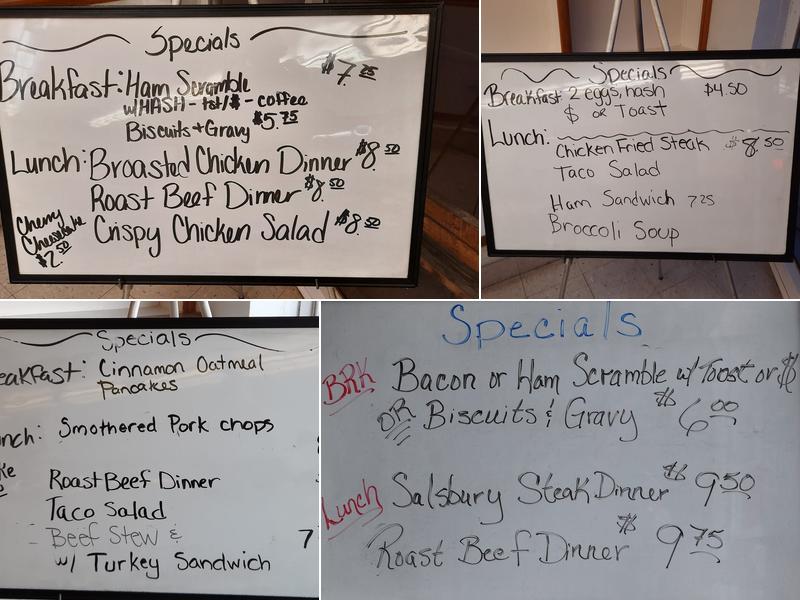 Specials
Breakfast: Ham Scramble $7.25
w/HASH - tst/$ - coffee
Biscuits + Gravy $5.75
Lunch: Broasted Chicken Dinner $8.50
Roast Beef Dinner $8.50
Crispy Chicken Salad $8.50
Cherry
Cheesecake
$2.50
Specials
Breakfast 2 eggs, hash $4.50
$ or Toast
Lunch:
Chicken Fried Steak $8.50
Taco Salad
Ham Sandwich 7 25
Broccoli Soup
Specials
eakfast: Cinnamon Oatmeal
Pancakes
nch: Smothered Pork chops
Roast Beef Dinner
Taco Salad
Beef Stew & 7
w/ Turkey Sandwich
Specials
BRK Bacon or Ham Scramble w/ Toast or $
OR Biscuits & Gravy $6.00
Lunch Salsbury Steak Dinner $9.50
Roast Beef Dinner $9.75